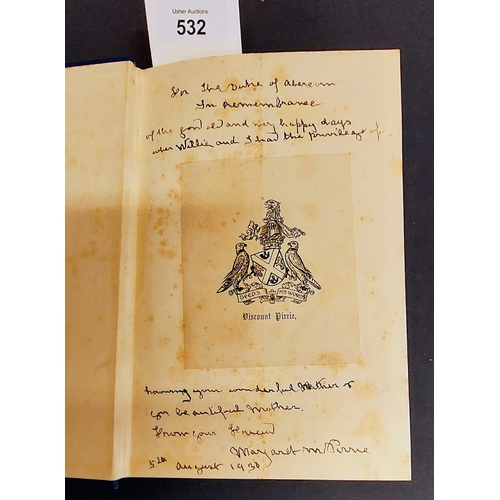 Usher Auctions
532
For The Duke of Abercorn
In remembrance
of the good old and very happy days
when Willie and I had the privilege of
DEEDS NOT WORDS
Viscount Pirrie,
knowing your wonderful Father &
your beautiful Mother.
From your Friend
Margaret M Pirrie
5th August 1930